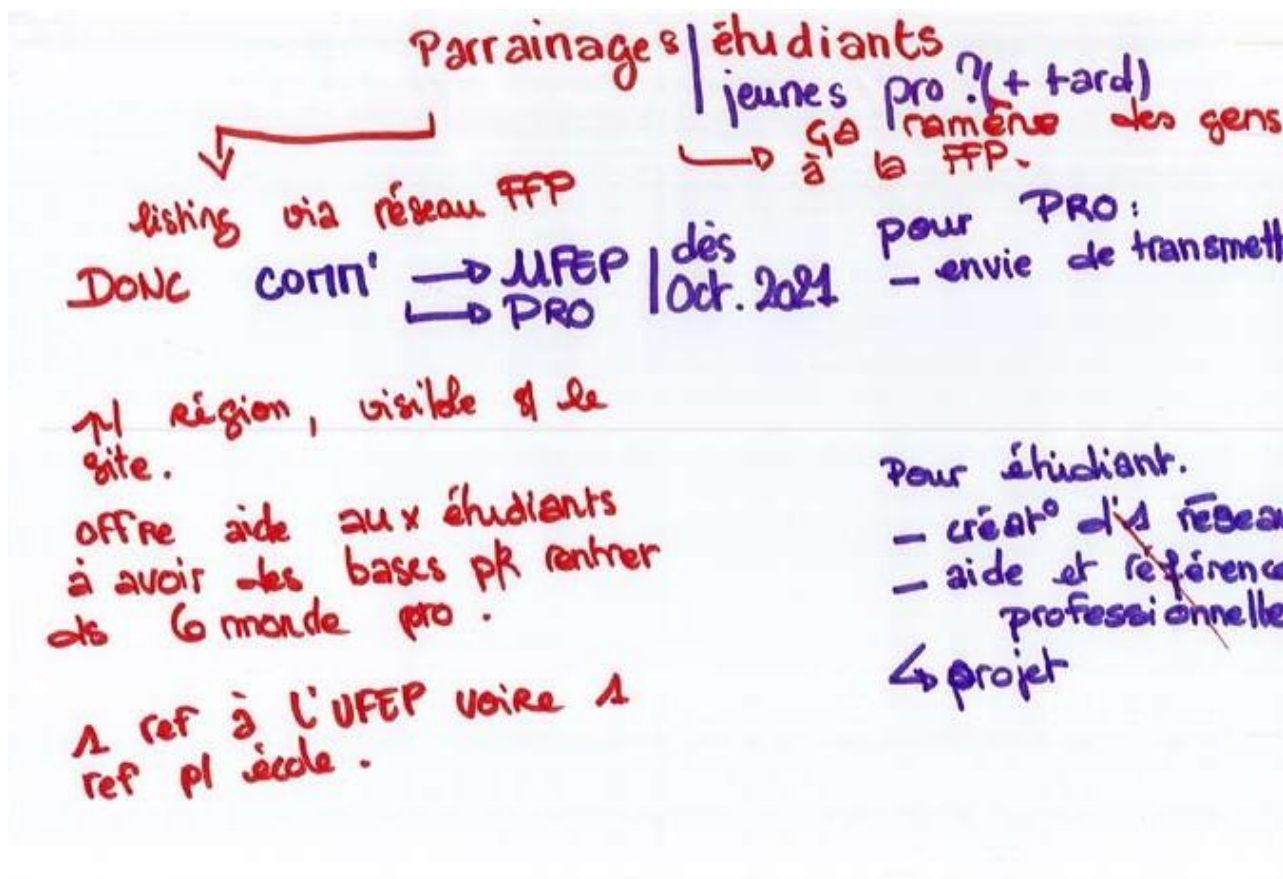 Parrainages | étudiants
| jeunes pro ? (+ tard)
↳ ça ramène des gens
à la FFP.
listing via réseau FFP
DONC comm' → UFEP | dès
↳ PRO | Oct. 2021
pour PRO :
- envie de transmett
/ région, visible le
site.
offre aide aux étudiants
à avoir des bases pR rentrer
ds le monde pro.
1 ref à l'UFEP voire 1
ref p/ école.
Pour étudiant.
- créat° d'1 réseau
- aide et référence
professionnelle
↳ projet